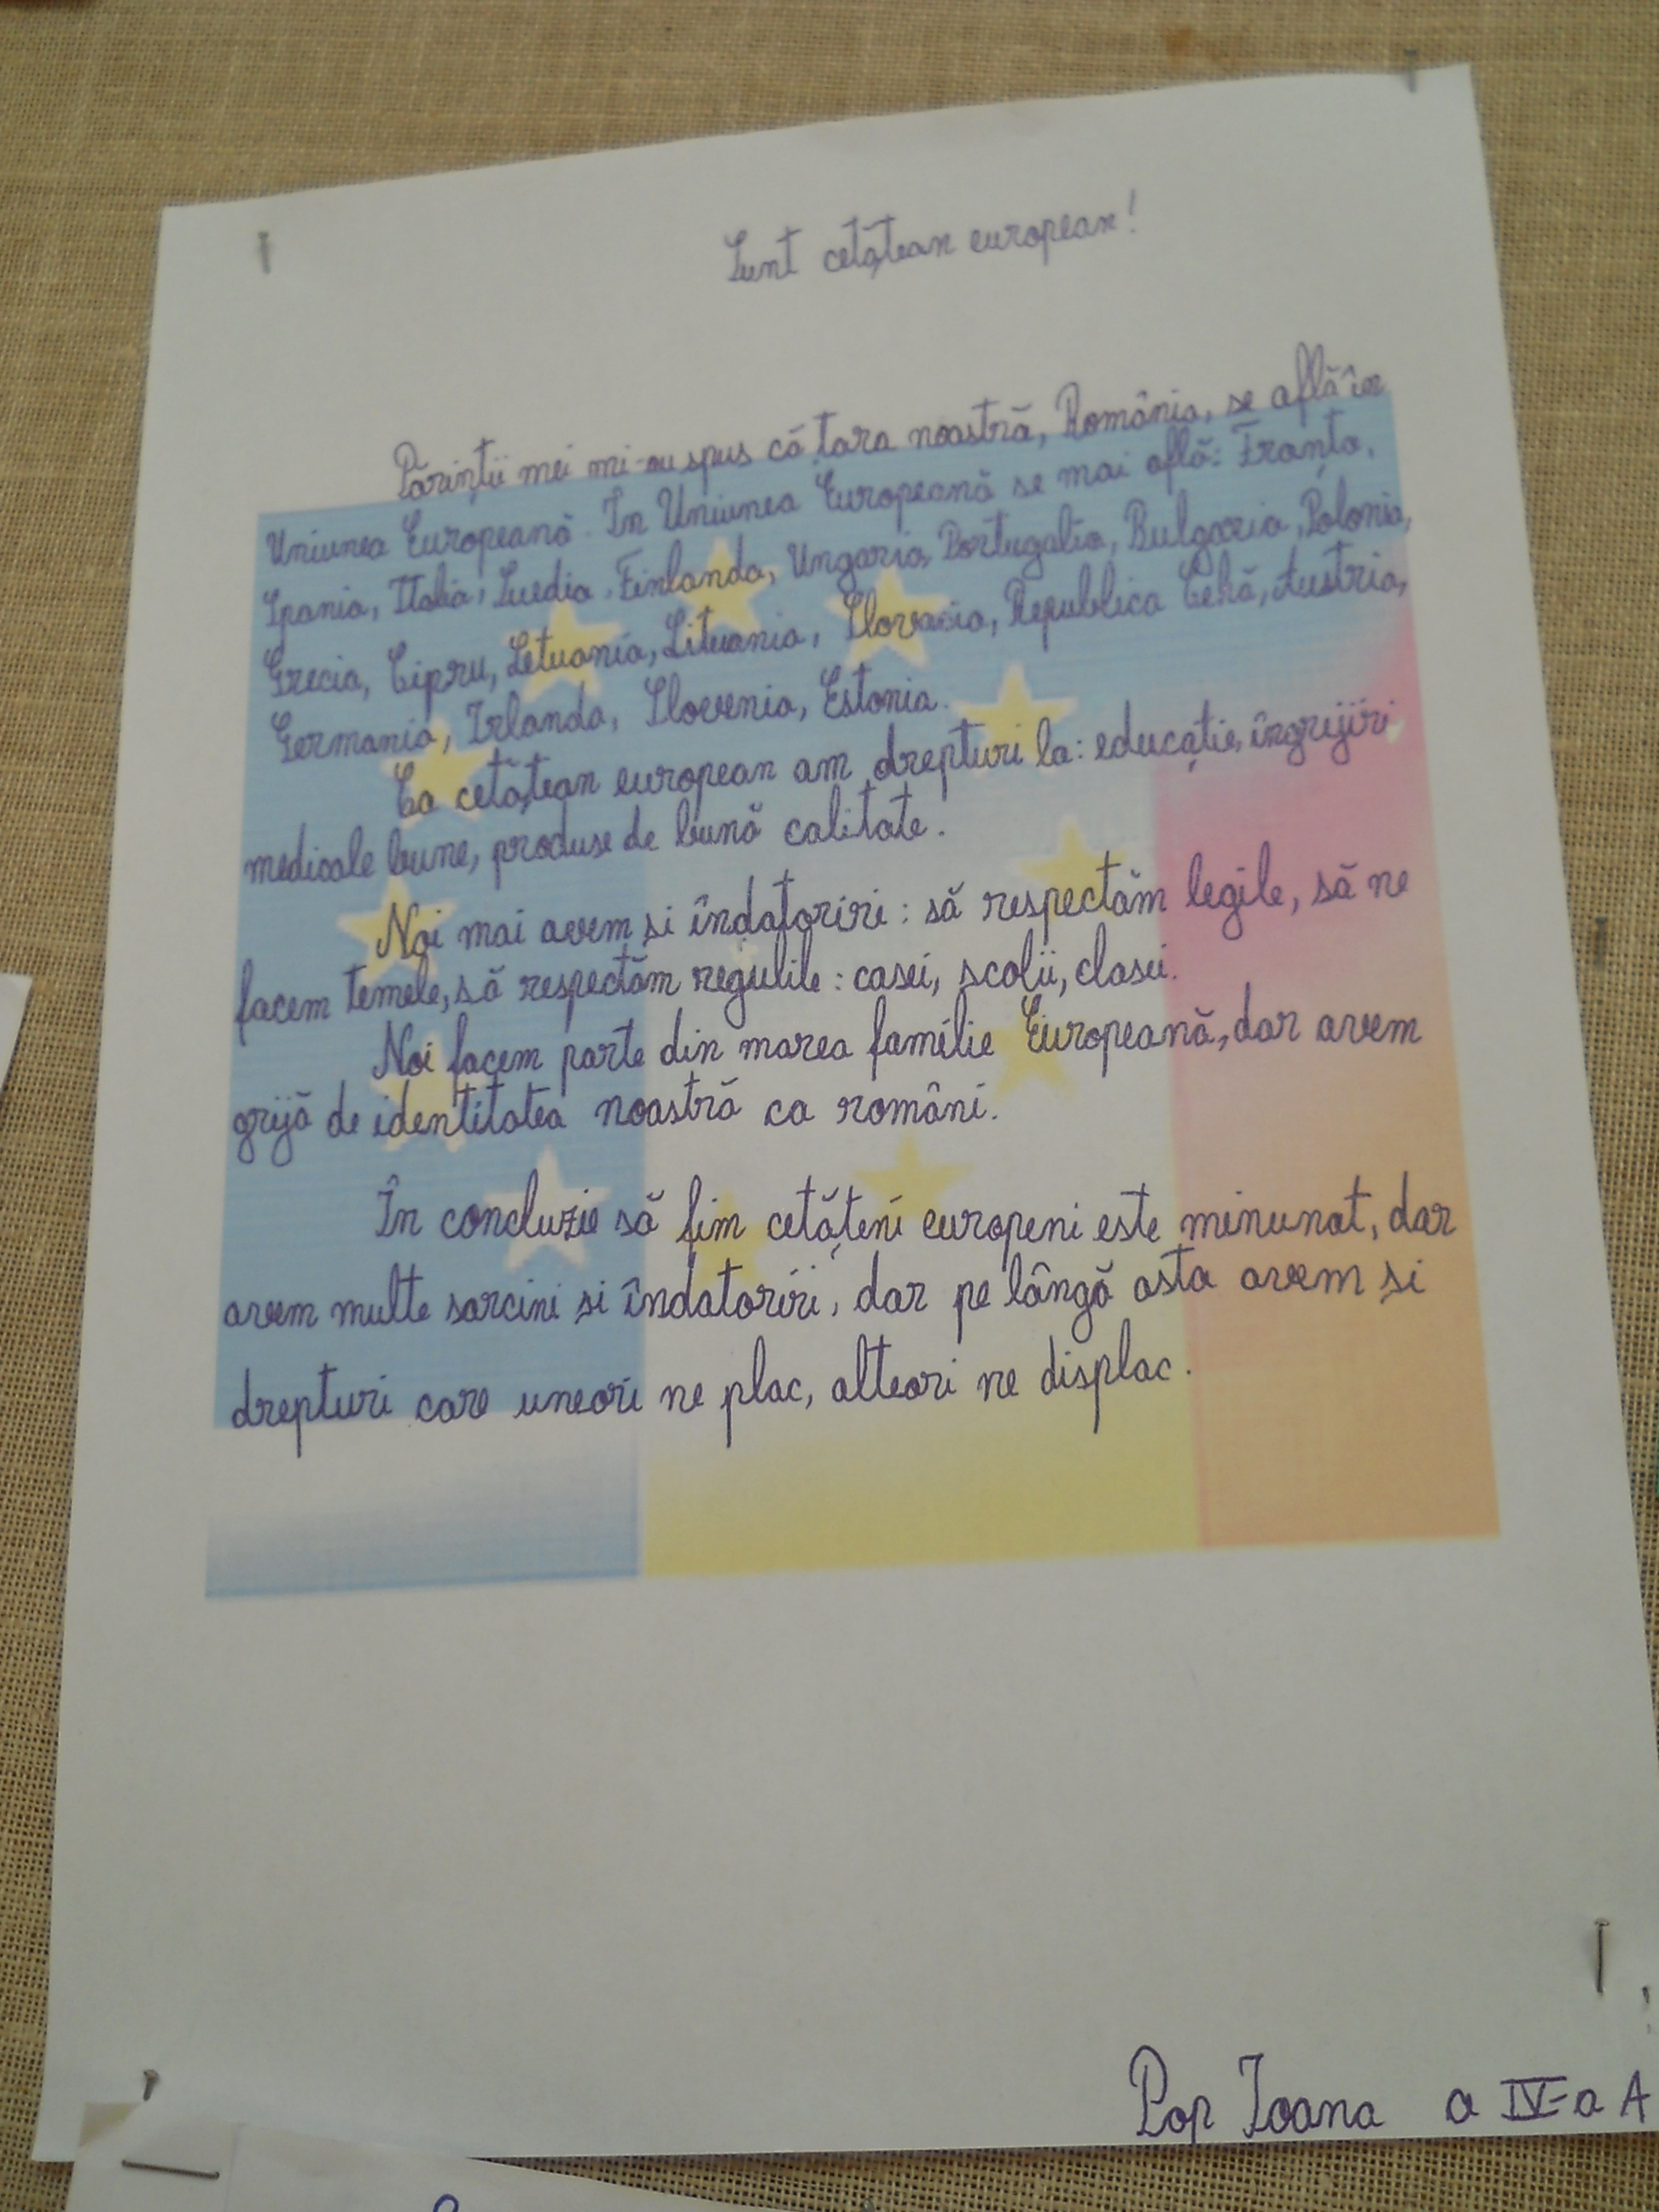 Sunt cetățean european!
Părinții mei mi-au spus că țara noastră, România, se află în
Uniunea Europeană. În Uniunea Europeană se mai află: Franța,
Spania, Italia, Suedia, Finlanda, Ungaria, Portugalia, Bulgaria, Polonia,
Grecia, Cipru, Letuania, Lituania, Slovacia, Republica Cehă, Austria,
Germania, Irlanda, Slovenia, Estonia.
Ca cetățean european am drepturi la: educație, îngrijiri
medicale bune, produse de bună calitate.
Noi mai avem și îndatoriri: să respectăm legile, să ne
facem temele, să respectăm regulile: casei, școlii, clasei.
Noi facem parte din marea familie Europeană, dar avem
grijă de identitatea noastră ca români.
În concluzie să fim cetățeni europeni este minunat, dar
avem multe sarcini și îndatoriri, dar pe lângă asta avem și
drepturi care uneori ne plac, alteori ne displac.
Pop Ioana a IV-a A